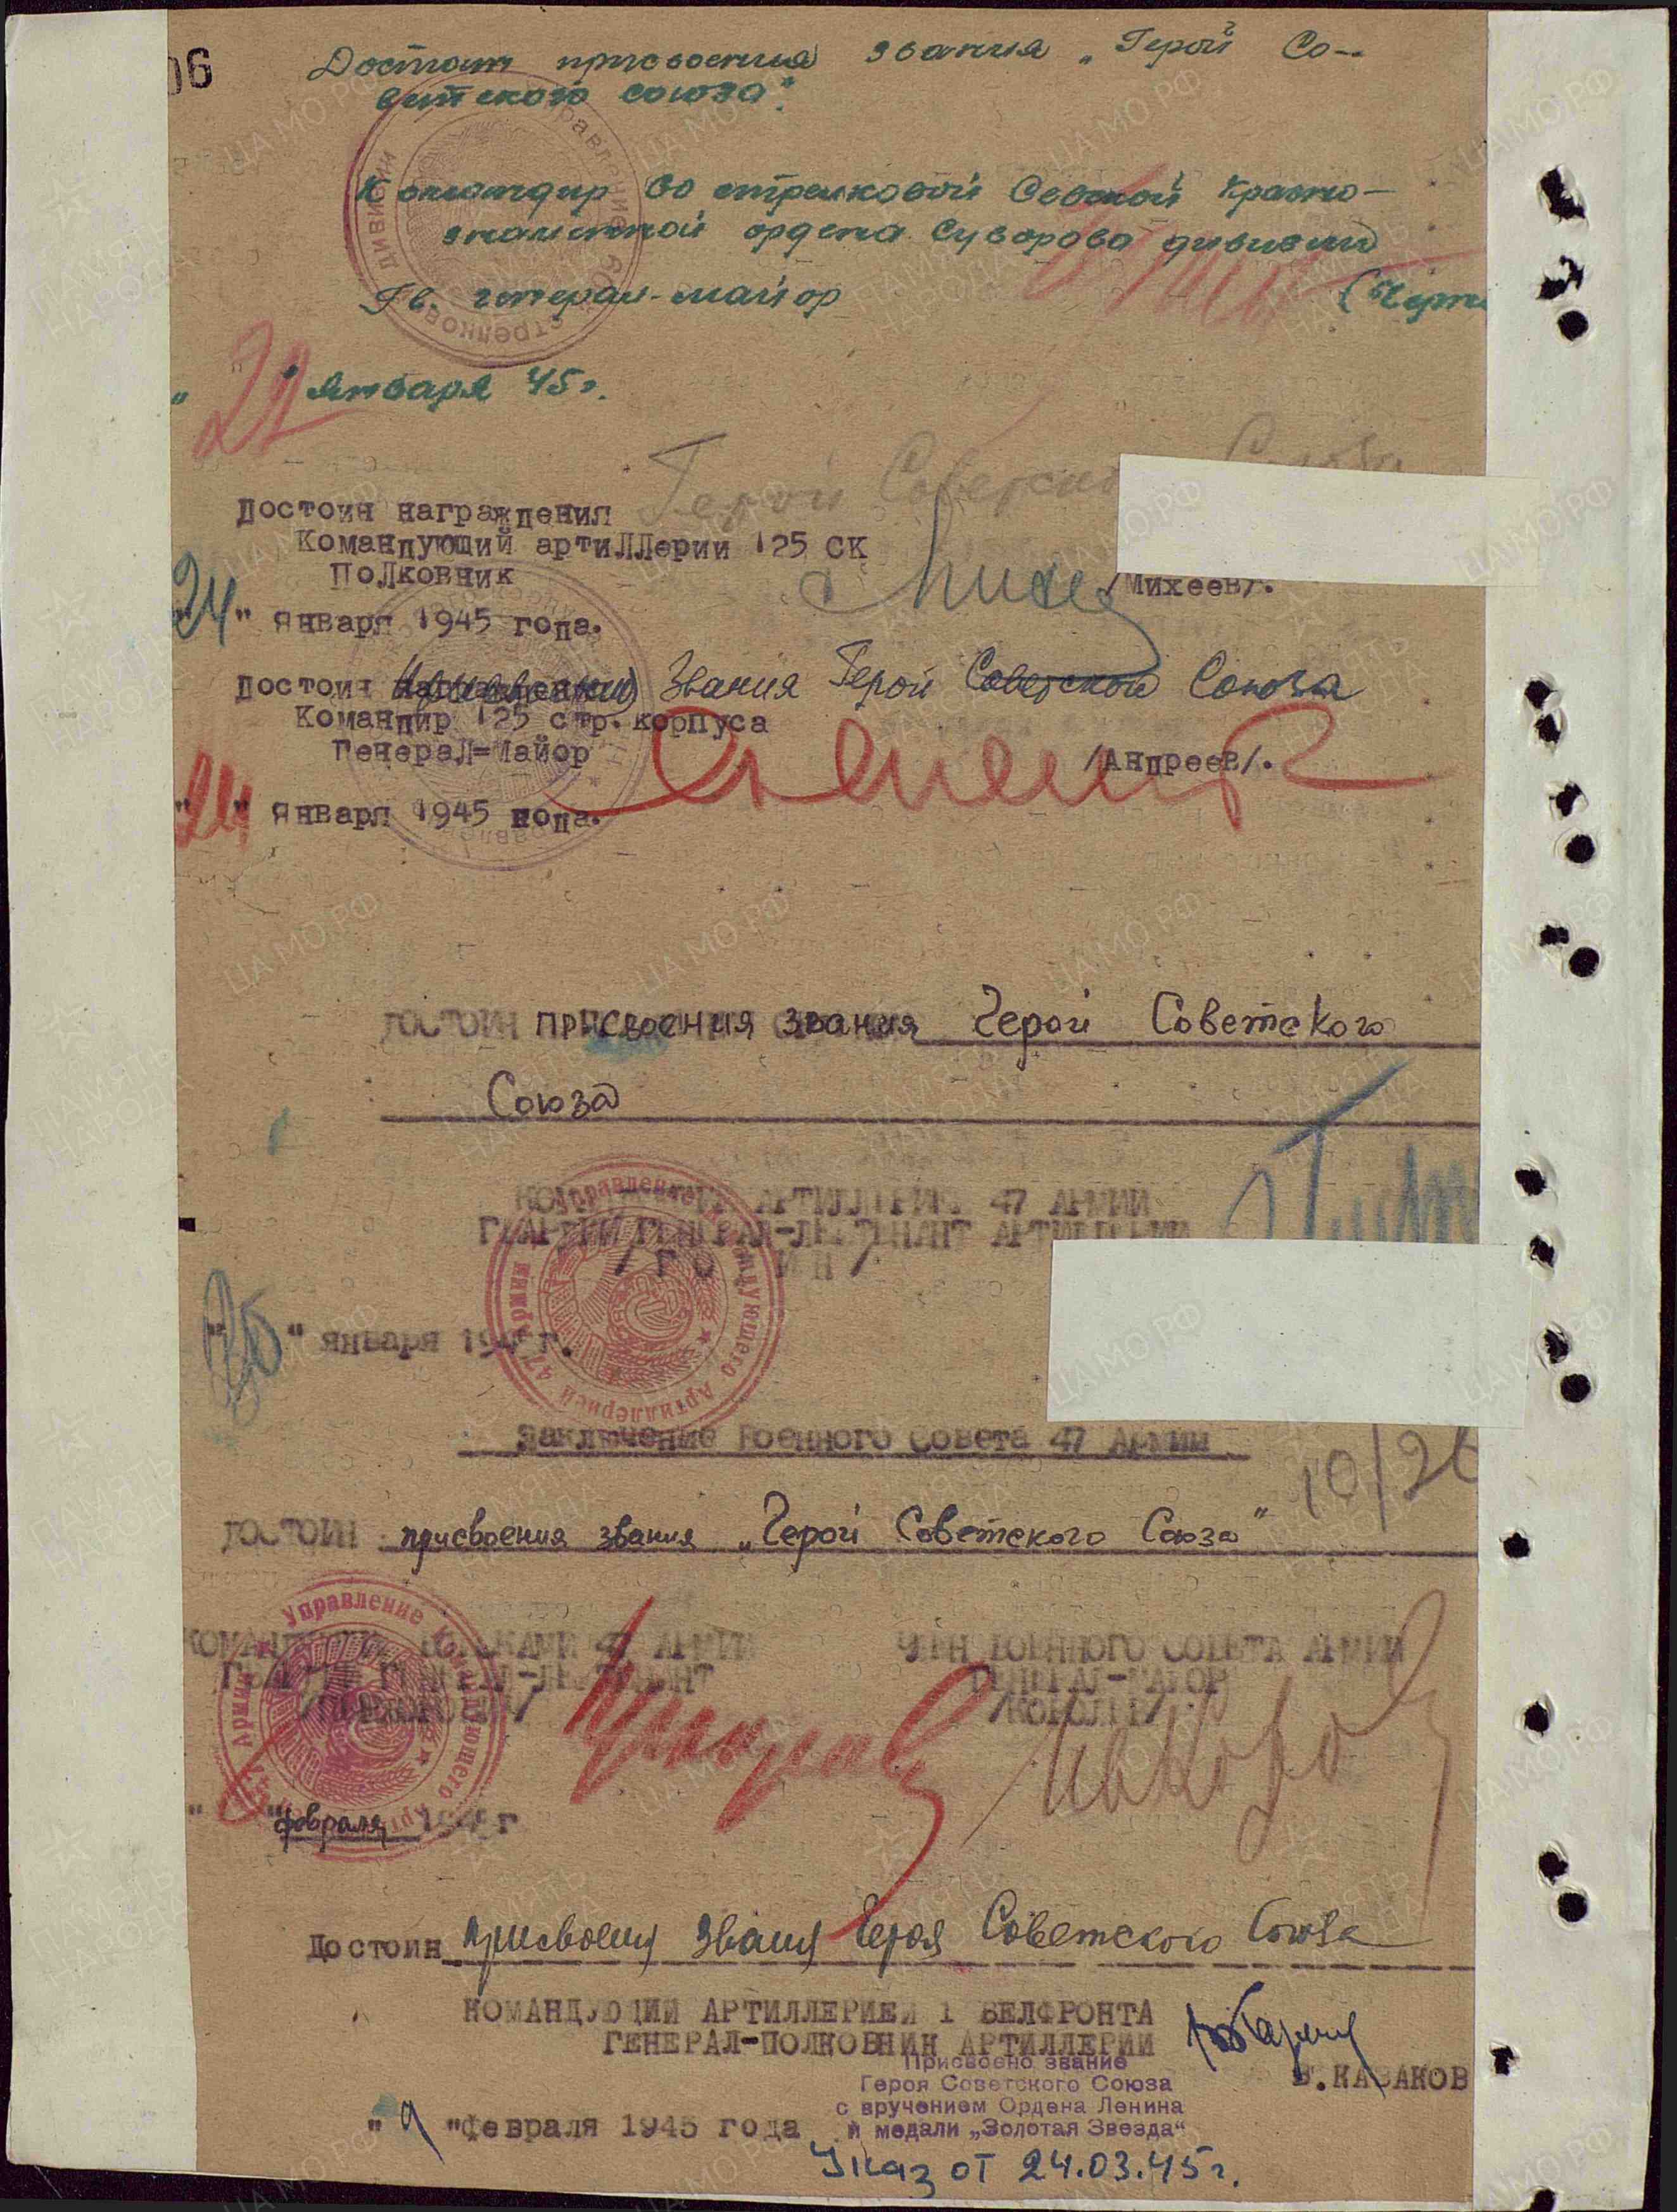 06
Достоин присвоения звания „Герой Со-
ветского союза".
Командир 60 стрелковой Севской Красно-
знаменной ордена Суворова дивизии
Гв. генерал-майор
"22" января 45 г.
Герой Советского Союза
Достоин награждения
Командующий артиллерии 125 СК
Полковник
/Михеев/.
"24" января 1945 года.
Достоин Звания Герой Советской Союза
Командир 125 стр. корпуса
Генерал-Майор
/Андреев/.
"24" января 1945 года.
ДОСТОИН присвоения звания Герой Советского
Союза
АРТИЛЛЕРИИ 47 АРМИИ
ГВАРДИИ ГЕНЕРАЛ-ЛЕЙТЕНАНТ АРТИЛЛЕРИИ
"26" января 1945 г.
Заключение Военного Совета 47 Армии
10/26
ДОСТОИН присвоения звания „Герой Советского Союза"
КОМАНДУЮЩИЙ ВОЙСКАМИ 47 АРМИИ
ЧЛЕН ВОЕННОГО СОВЕТА АРМИИ
ГВАРДИИ ГЕНЕРАЛ-ЛЕЙТЕНАНТ
ГЕНЕРАЛ-МАЙОР
/КОРОЛЕВ/
февраля 1945 г
Достоин присвоения звания Героя Советского Союза
КОМАНДУЮЩИЙ АРТИЛЛЕРИЕЙ 1 БЕЛФРОНТА
ГЕНЕРАЛ-ПОЛКОВНИК АРТИЛЛЕРИИ
В.КАЗАКОВ
Присвоено звание
Героя Советского Союза
с вручением Ордена Ленина
и медали „Золотая Звезда"
"9" февраля 1945 года
Указ от 24.03.45 г.